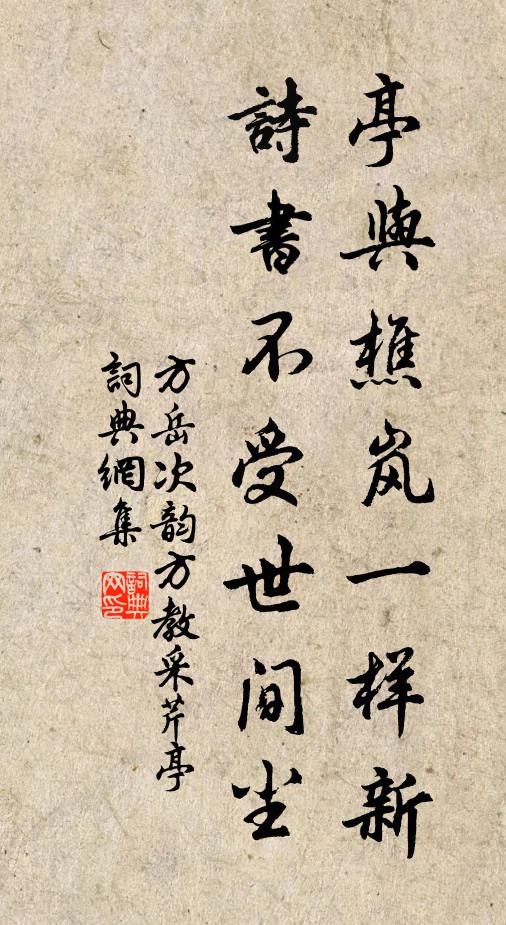 亭與樵岚一样新
詩書不受世間尘
方岳次韵方教采芹亭
詞典網集
詞典网印